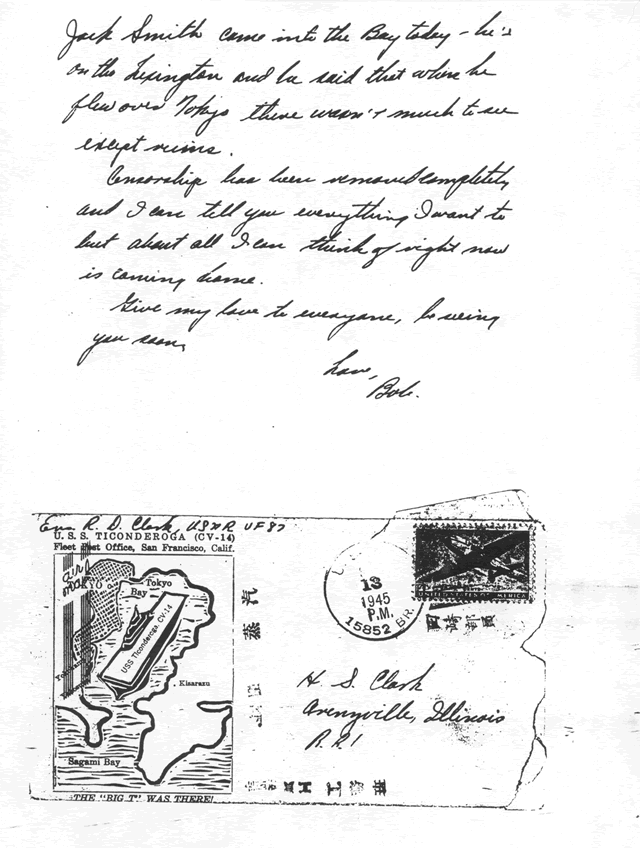 Jack Smith came into the Bay today – he's
on the Lexington and he said that where he
flew over Tokyo there wasn't much to see
except ruins.
Censorship has been removed completely
and I can tell you everything I want to
but about all I can think of right now
is coming home.
Give my love to everyone, be seeing
you soon,
Love,
Bob.
Ens R. D. Clark, USNR VF87
U.S.S. TICONDEROGA (CV-14)
Fleet Post Office, San Francisco, Calif.
Air Mail
TOKYO
Tokyo
Bay
USS Ticonderoga, CV-14
Kisarazu
Sagami Bay
THE "BIG T" WAS THERE!
蒸 汽
13
1945
P.M.
15852 BR.
H. S. Clark
Arenzville, Illinois
R. R. 1